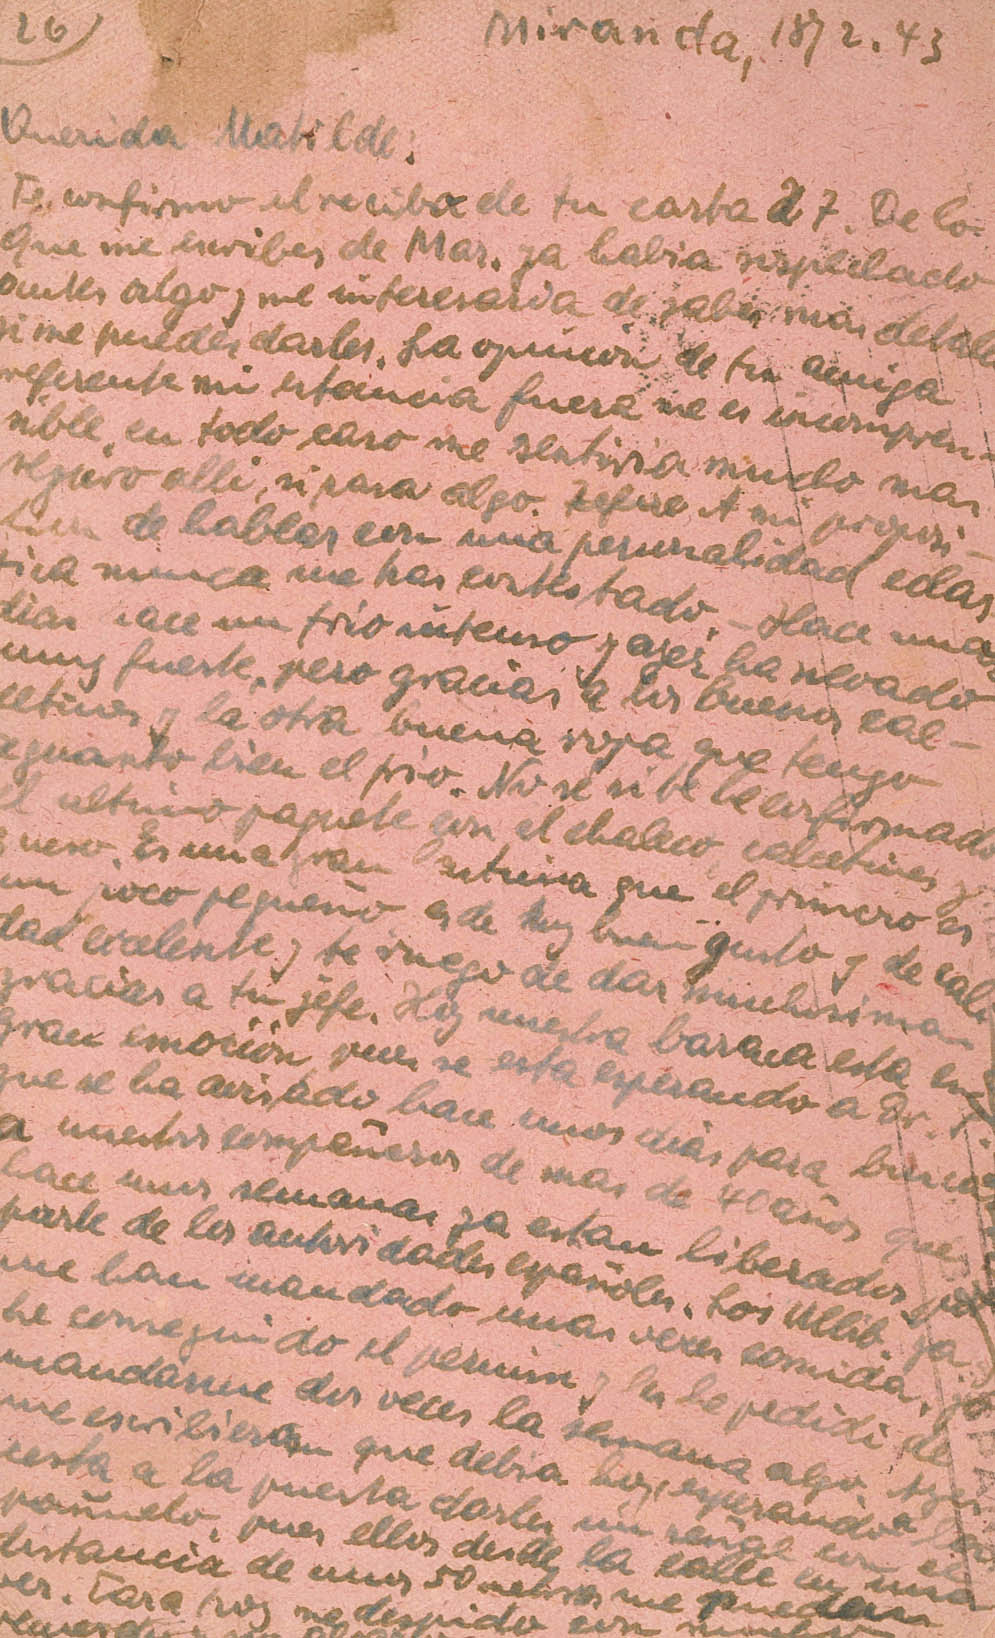 26
Miranda, 18/2.43
Querida Matilde:
Te confirmo el recibo de tu carta 27. De lo
que me escribes de Mar. ya habia sospechado
antes algo y me interesaria de saber mas detalles
si me puedes darles. La opinion de tu amiga
referente mi estancia fuera me es incompren-
sible, en todo caso me sentiria mucho mas
seguro alli, si pasa algo. A mi proposi-
de hablar con una personalidad eclas
tica nunca me has contestado. - Hace unos
dias hace un frio intenso y ayer ha nevado
muy fuerte, pero gracias a los buenos cal-
cetines y la otra buena ropa que tengo
aguanto bien el frio. No se si te he confirmado
el ultimo paquete con el chaleco, calcetines y
queso. Es una gran lastima que el primero es
un poco pequeño, es de muy buen gusto y de cali
dad excelente y te ruego de dar muchisimas
gracias a tu jefe. Hoy nuestra baraca esta en
gran emoción pues se esta esperando a Sr.
que se ha avisado hace unos dias para buscar
a nuestros compañeros de mas de 40 años que
hace unas semanas ya estan liberados por
parte de las autoridades españoles. Los Ullib. ya
me han mandado unas veces comida, yo
he conseguido el permiso y les he pedido de
mandarme dos veces la semana algo. Ayer
me escribieron que debia hoy, esperando la
cesta a la puerta darles un señal con el
pañuelo, pues ellos desde la calle en una
distancia de unos 50 metros me pueden
ver. Para hoy me despido con muchos
recuerdos